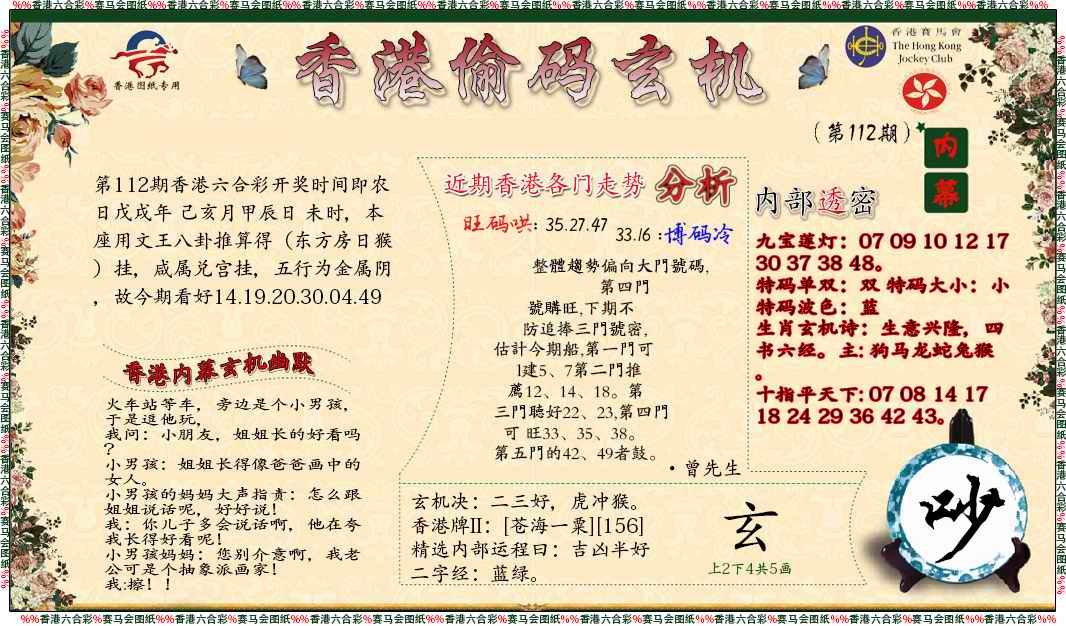 %%香港六合彩%赛马会图纸%%香港六合彩%赛马会图纸%%香港六合彩%赛马会图纸%%香港六合彩%赛马会图纸%%香港六合彩%赛马会图纸%%香港六合彩%赛马会图纸%%香港六合彩%%
香港图纸专用
香港偷码玄机
香港賽馬會
The Hong Kong
Jockey Club
（第112期）
内
幕
第112期香港六合彩开奖时间即农
日戊戌年 己亥月甲辰日 未时，本
座用文王八卦推算得（东方房日猴
）挂，咸属兑宫挂，五行为金属阴
，故今期看好14.19.20.30.04.49
香港内幕玄机幽默
火车站等车，旁边是个小男孩，
于是逗他玩，
我问：小朋友，姐姐长的好看吗
？
小男孩：姐姐长得像爸爸画中的
女人。
小男孩的妈妈大声指责：怎么跟
姐姐说话呢，好好说！
我：你儿子多会说话啊，他在夸
我长得好看呢！
小男孩妈妈：您别介意啊，我老
公可是个抽象派画家！
我:擦！！
近期香港各门走势 分析
旺码哄: 35.27.47
33.16 :博码冷
整體趨勢偏向大門號碼,
第四門
號購旺,下期不
防追捧三門號密,
估計今期船,第一門可
l建5、7第二門推
薦12、14、18。第
三門聴好22、23,第四門
可 旺33、35、38。
第五門的42、49者鼓。
·曾先生
玄机决：二三好，虎冲猴。
香港牌II：[苍海一粟][156]
精选内部运程曰：吉凶半好
二字经：蓝绿。
玄
上2下4共5画
内部透密
九宝莲灯：07 09 10 12 17
30 37 38 48。
特码单双：双 特码大小：小
特码波色：蓝
生肖玄机诗：生意兴隆，四
书六经。主: 狗马龙蛇兔猴
。
十指平天下: 07 08 14 17
18 24 29 36 42 43。
吵
%%香港六合彩%赛马会图纸%%香港六合彩%赛马会图纸%%香港六合彩%赛马会图纸%%香港六合彩%赛马会图纸%%香港六合彩%赛马会图纸%%香港六合彩%赛马会图纸%%香港六合彩%%